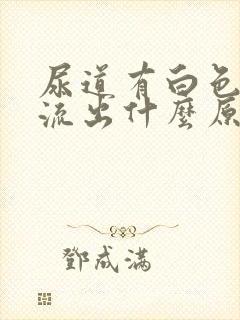 尿道有白色
流出什麼原
鄧成滿